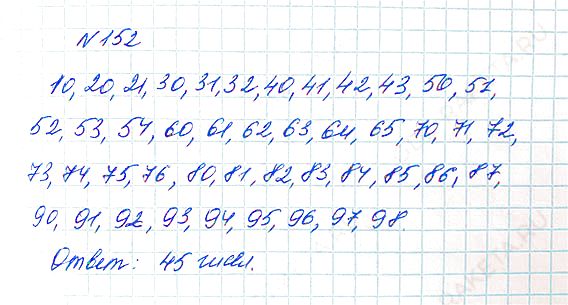 №152
10, 20, 21, 30, 31, 32, 40, 41, 42, 43, 50, 51,
52, 53, 54, 60, 61, 62, 63, 64, 65, 70, 71, 72,
73, 74, 75, 76, 80, 81, 82, 83, 84, 85, 86, 87,
90, 91, 92, 93, 94, 95, 96, 97, 98.
Ответ: 45 чисел.